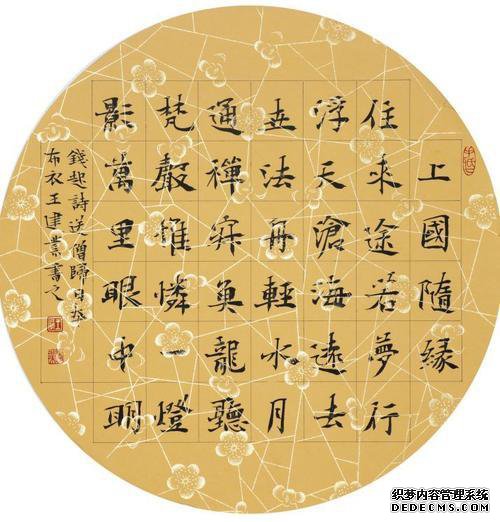 上國隨緣
住来途若夢行
浮天滄海遠去
世法舟輕水月
通禪寂魚龍聽
梵聲惟憐一燈
影萬里眼中明
錢起詩送僧歸日本
布衣王建業書之
织梦内容管理系统
DEDECMS.COM